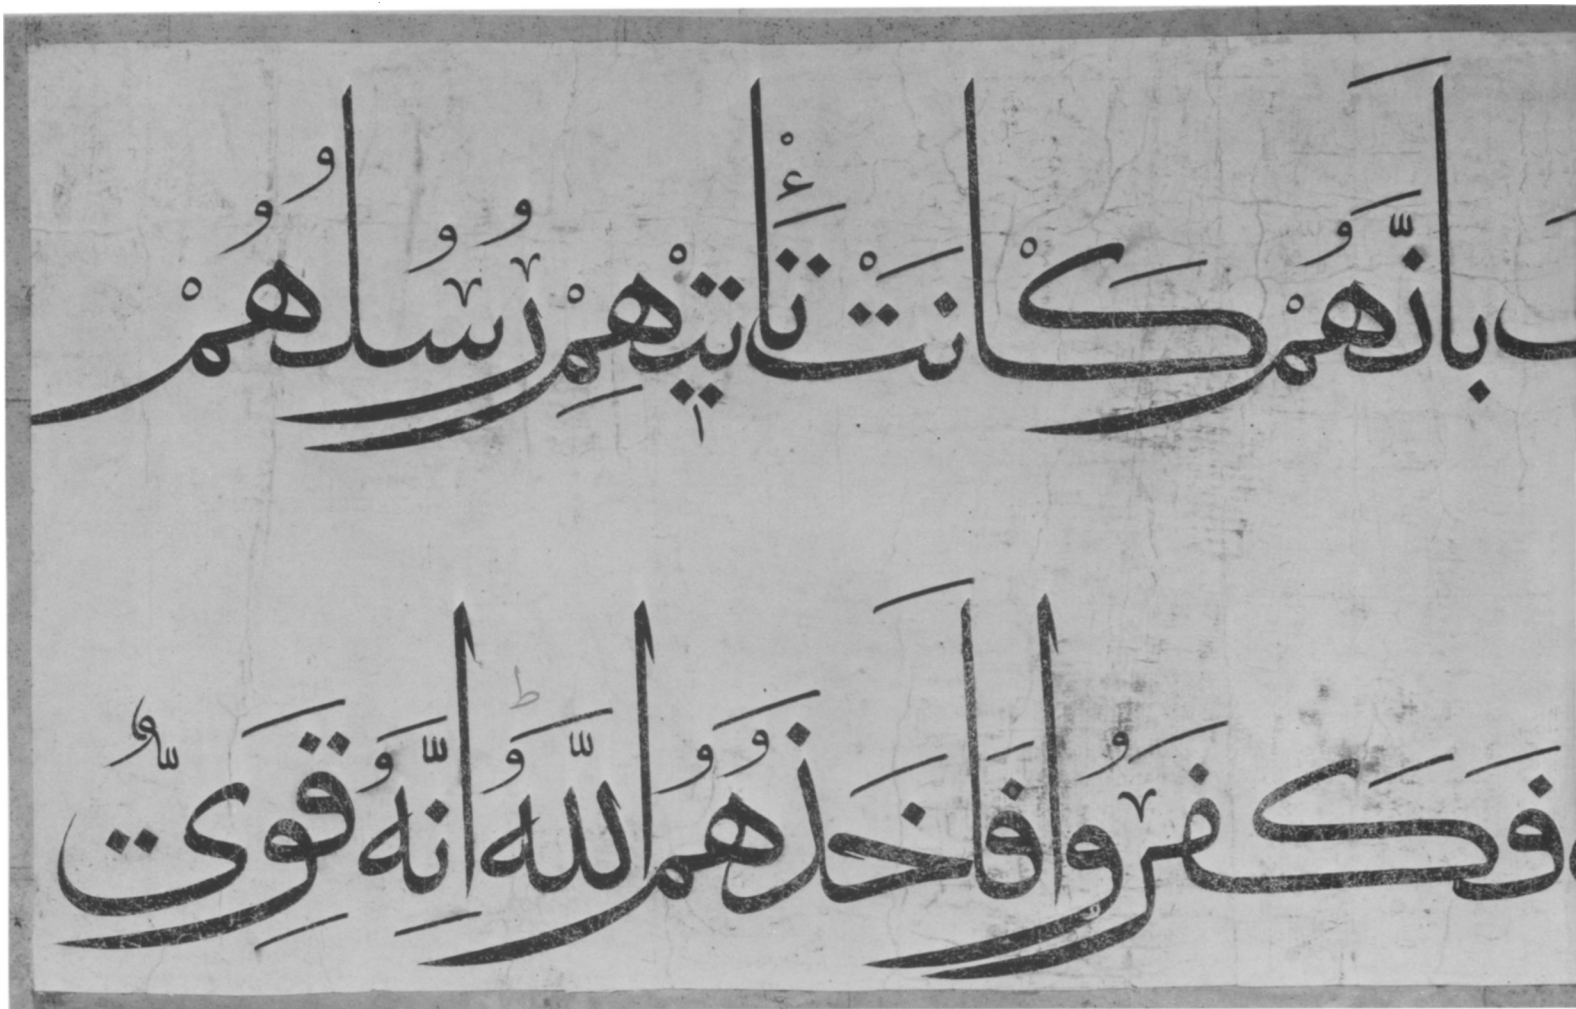 بِاَنَّهُمْ كَانَتْ تَأْتِيْهِمْ رُسُلُهُمْ
فَكَفَرُوا فَاَخَذَهُمُ اللّٰهُ ط اِنَّهُ قَوِىٌّ